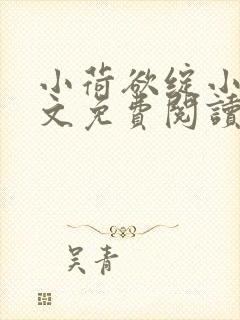 小荷欲绽小
文免費閱讀
吴青